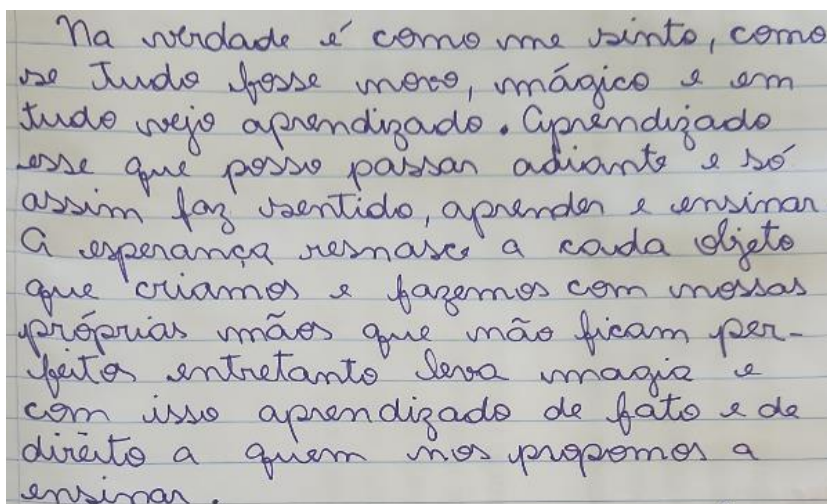 Na verdade é como me sinto, como
se tudo fosse novo, mágico e em
tudo vejo aprendizado. Aprendizado
esse que posso passar adiante e só
assim faz sentido, aprender e ensinar
A esperança renasce a cada objeto
que criamos e fazemos com nossas
próprias mãos que não ficam per-
feitos entretanto leva magia e
com isso aprendizado de fato e de
direito a quem nos propomos a
ensinar.